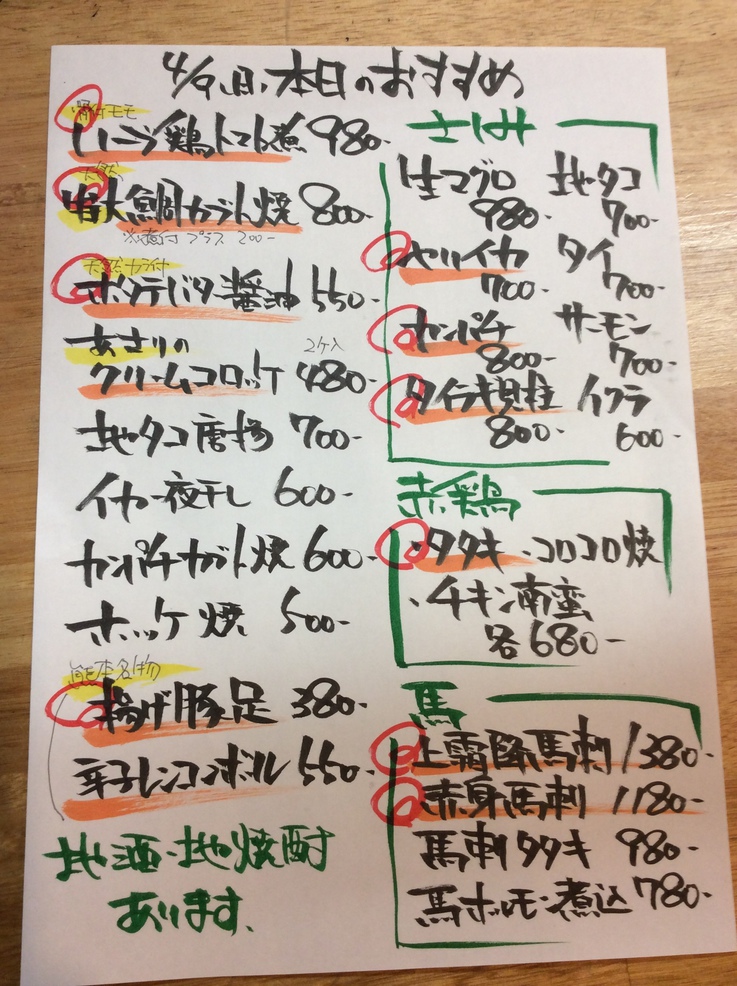 4/9(月)本日のおすすめ
骨付モモ
トマト煮 980-
天然
特大鯛カブト焼 800-
※煮付プラス 200-
天然
ホタテバター醤油 550-
あさりの
2ケ入
クリームコロッケ 480-
地タコ唐揚 700-
イカ一夜干し 600-
カンパチカブト焼 600-
ホッケ焼 500-
熊本名物
揚げ豚足 380-
辛子レンコンボール 550-
地酒・地焼酎
あります。
さしみ
生マグロ 地タコ
980- 700-
ヤリイカ タイ
700- 700-
カンパチ サーモン
800- 700-
タイラ貝柱 イクラ
800- 600-
赤鶏
・タタキ・コロコロ焼
・チキン南蛮
各680-
馬
上霜降馬刺 1380-
赤身馬刺 1180-
馬刺タタキ 980-
馬ホルモン煮込 780-